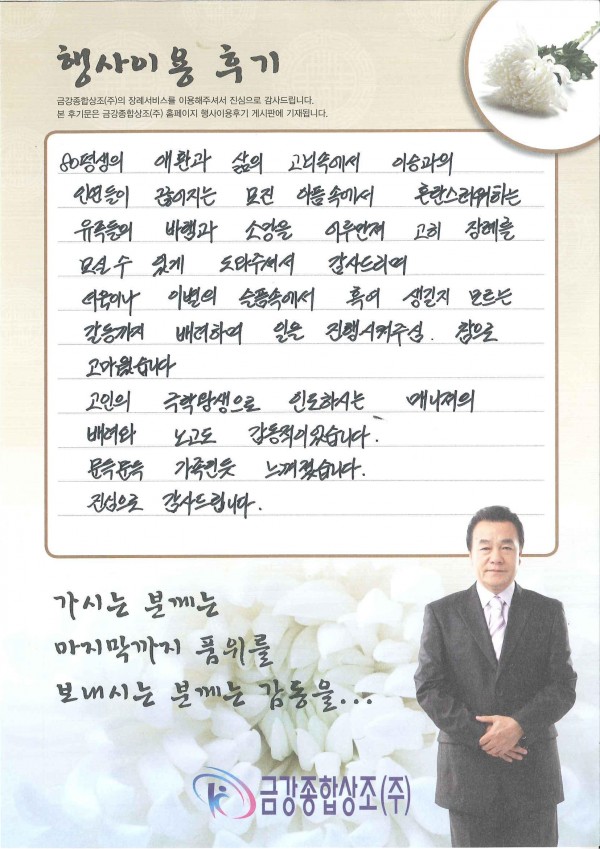 행사이용 후기
금강종합상조(주)의 장례서비스를 이용해주셔서 진심으로 감사드립니다.
본 후기문은 금강종합상조(주) 홈페이지 행사이용후기 게시판에 기재됩니다.
80평생의 애환과 삶의 고뇌속에서 이승과의
인연들이 끊어지는 모진 아픔속에서 혼란스러워하는
유족들의 바램과 소망을 어루만져 고히 장례를
모실 수 있게 도와주셔서 감사드리며
이별의 슬픔속에서 혹여 생길지 모르는
갈등까지 배려하며 일을 진행시켜주심. 참으로
고마웠습니다
고인의 극락탄생으로 인도하시는 매니져의
배려와 노고도 감동적이었습니다.
문득문득 가족인듯 느껴졌습니다.
진심으로 감사드립니다.
가시는 분께는
마지막까지 품위를
보내시는 분께는 감동을...
금강종합상조(주)